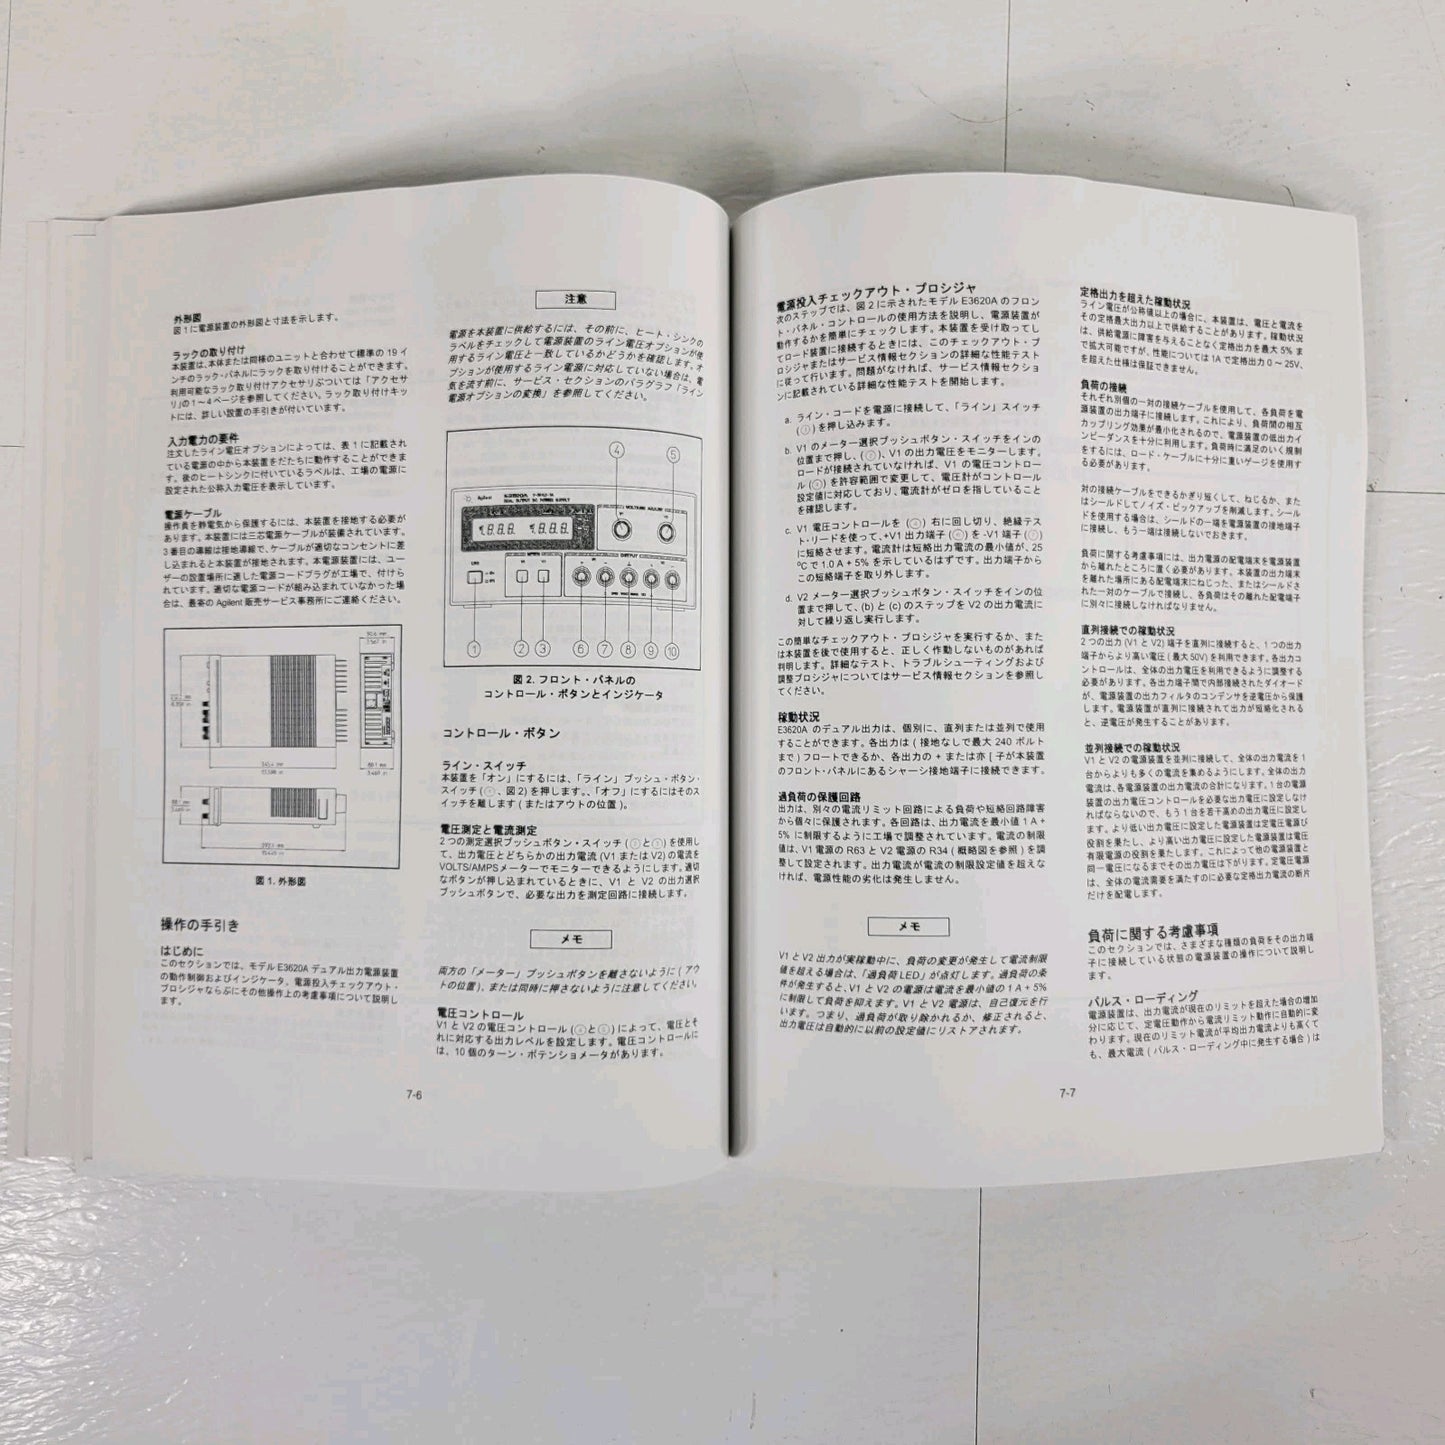 外形図
図1に電源装置の外形図と寸法を示します。
ラックの取り付け
本装置は、本体または同様のユニットと合わせて標準の 19 イ
ンチのラック・パネルにラックを取り付けることができます。
利用可能なラック取り付けアクセサリぶついては「アクセサ
リ」の1〜4ページを参照してください。ラック取り付けキッ
トには、詳しい設置の手引きが付いています。
入力電力の要件
注文したライン電圧オプションによっては、表1に記載され
ている電源の中から本装置をだたちに動作することができま
す。後のヒートシンクに付いているラベルは、工場の電源に
設定された公称入力電圧を表示しています。
電源ケーブル
操作員を静電気から保護するには、本装置を接地する必要が
あります。本装置には三芯電源ケーブルが装備されています。
3番目の導線は接地導線で、ケーブルが適切なコンセントに差
し込まれると本装置が接地されます。本電源装置には、ユー
ザーの設置場所に適した電源コードプラグが工場で、付けら
れています。適切な電源コードが組み込まれていなかった場
合は、最寄の Agilent 販売サービス事務所にご連絡ください。
図 1. 外形図
操作の手引き
はじめに
このセクションでは、モデル E3620A デュアル出力電源装置
の動作制御およびインジケータ、電源投入チェックアウト・
プロシジャならぶにその他操作上の考慮事項について説明し
ます。
注意
電源を本装置に供給するには、その前に、ヒート・シンクの
ラベルをチェックして電源装置のライン電圧オプションが使
用するライン電圧と一致しているかどうかを確認します。オ
プションが使用するライン電源に対応していない場合は、電
気を流す前に、サービス・セクションのパラグラフ「ライン
電源オプションの変換」を参照してください。
Agilent
④ ⑤
① ② ③ ⑥ ⑦ ⑧ ⑨ ⑩
図 2. フロント・パネルの
コントロール・ボタンとインジケータ
コントロール・ボタン
ライン・スイッチ
本装置を「オン」にするには、「ライン」プッシュ・ボタン・
スイッチ (①、図2) を押します。、「オフ」にするにはそのス
イッチを離します ( またはアウトの位置 )。
電圧測定と電流測定
2 つの測定選択プッシュボタン・スイッチ (②と③) を使用し
て、出力電圧とどちらかの出力電流 (V1 または V2) の電流を
VOLTS/AMPSメーターでモニターできるようにします。適切
なボタンが押し込まれているときに、V1 と V2 の出力選択
プッシュボタンで、必要な出力を測定回路に接続します。
メモ
両方の「メーター」プッシュボタンを離さないように ( アウ
トの位置 )、または同時に押さないように注意してください。
電圧コントロール
V1 と V2 の電圧コントロール (④と⑤) によって、電圧とそ
れに対応する出力レベルを設定します。電圧コントロールに
は、10 個のターン・ポテンショメータがあります。
7-6
電源投入チェックアウト・プロシジャ
次のステップでは、図 2 に示されたモデル E3620A のフロン
ト・パネル・コントロールの使用方法を説明し、電源装置が
動作するかを簡単にチェックします。本装置を受け取ってし
てロード装置に接続するときには、このチェックアウト・プ
ロシジャまたはサービス情報セクションの詳細な性能テスト
に従って行います。問題がなければ、サービス情報セクショ
ンに記載されている詳細な性能テストを開始します。
a. ライン・コードを電源に接続して、「ライン」スイッチ
(①) を押し込みます。
b. V1 のメーター選択プッシュボタン・スイッチをインの
位置まで押し、(②)、V1 の出力電圧をモニターします。
ロードが接続されていなければ、V1 の電圧コントロー
ル (④) を許容範囲で変更して、電圧計がコントロール
設定値に対応しており、電流計がゼロを指していること
を確認します。
c. V1 電圧コントロールを (④) 右に回し切り、絶縁テス
ト・リードを使って、+V1 出力端子 (⑥) を -V1 端子 (⑦)
に短絡させます。電流計は短絡出力電流の最小値が、25
ºC で 1.0 A + 5% を示しているはずです。出力端子から
この短絡端子を取り外します。
d. V2 メーター選択プッシュボタン・スイッチをインの位
置まで押して、(b) と (c) のステップを V2 の出力電流に
対して繰り返し実行します。
この簡単なチェックアウト・プロシジャを実行するか、また
は本装置を後で使用すると、正しく作動しないものがあれば
判明します。詳細なテスト、トラブルシューティングおよび
調整プロシジャについてはサービス情報セクションを参照し
てください。
稼動状況
E3620A のデュアル出力は、個別に、直列または並列で使用
することができます。各出力は ( 接地なしで最大 240 ボルト
まで ) フロートできるか、各出力の + または亦 [ 子が本装置
のフロント・パネルにあるシャーシ接地端子に接続できます。
過負荷の保護回路
出力は、別々の電流リミット回路による負荷や短絡回路障害
から個々に保護されます。各回路は、出力電流を最小値 1 A +
5% に制限するように工場で調整されています。電流の制限
値は、V1 電源の R63 と V2 電源の R34 ( 概略図を参照 ) を調
整して設定されます。出力電流が電流の制限設定値を超えな
ければ、電源性能の劣化は発生しません。
メモ
V1 と V2 出力が実稼動中に、負荷の変更が発生して電流制限
値を超える場合は、「過負荷 LED」が点灯します。過負荷の条
件が発生すると、V1 と V2 の電源は電流を最小値の 1 A + 5%
に制限して負荷を抑えます。V1 と V2 電源は、自己復元を行
います。つまり、過負荷が取り除かれるか、修正されると、
出力電圧は自動的に以前の設定値にリストアされます。
定格出力を超えた稼動状況
ライン電圧が公称値以上の場合に、本装置は、電圧と電流を
その定格最大出力以上で供給することがあります。稼動状況
は、供給電源に障害を与えることなく定格出力を最大 5% ま
で拡大可能ですが、性能については 1A で定格出力 0 〜 25V、
を超えた仕様は保証できません。
負荷の接続
それぞれ別個の一対の接続ケーブルを使用して、各負荷を電
源装置の出力端子に接続します。これにより、負荷間の相互
カップリング効果が最小化されるので、電源装置の低出力イ
ンピーダンスを十分に利用します。負荷時に満足のいく規制
をするには、ロード・ケーブルに十分に重いゲージを使用す
る必要があります。
対の接続ケーブルをできるかぎり短くして、ねじるか、また
はシールドしてノイズ・ピックアップを削減します。シール
ドを使用する場合は、シールドの一端を電源装置の接地端子
に接続し、もう一端は接続しないでおきます。
負荷に関する考慮事項には、出力電源の配電端末を電源装置
から離れたところに置く必要があります。本装置の出力端末
を離れた場所にある配電端末にねじった、またはシールドさ
れた一対のケーブルで接続し、各負荷はその離れた配電端子
に別々に接続しなければなりません。
直列接続での稼動状況
2 つの出力 (V1 と V2) 端子を直列に接続すると、1 つの出力
端子からより高い電圧 ( 最大 50V) を利用できます。各出力コ
ントロールは、全体の出力電圧を利用できるように調整する
必要があります。各出力端子間で内部接続されたダイオード
が、電源装置の出力フィルタのコンデンサを逆電圧から保護
します。電源装置が直列に接続されて出力が短絡化される
と、逆電圧が発生することがあります。
並列接続での稼動状況
V1 と V2 の電源装置を並列に接続して、全体の出力電流を 1
台からよりも多くの電流を集めるようにします。全体の出力
電流は、各電源装置の出力電流の合計になります。1 台の電源
装置の出力電圧コントロールを必要な出力電圧に設定しなけ
ればならないので、もう 1 台を若干高めの出力電圧に設定し
ます。より低い出力電圧に設定した電源装置は定電圧電源び
役割を果たし、より高い出力電圧に設定した電源装置は電圧
有限電源の役割を果たします。これによって他の電源装置と
同一電圧になるまでその出力電圧は下がります。定電圧電源
は、全体の電流需要を満たすのに必要な定格出力電流の断片
だけを配電します。
負荷に関する考慮事項
このセクションでは、さまざまな種類の負荷をその出力端
子に接続している状態の電源装置の操作について説明し
ます。
パルス・ローディング
電源装置は、出力電流が現在のリミットを超えた場合の増加
分に応じて、定電圧動作から電流リミット動作に自動的に変
わります。現在のリミット電流が平均出力電流よりも高くて
も、最大電流 ( パルス・ローディング中に発生する場合 ) は
7-7